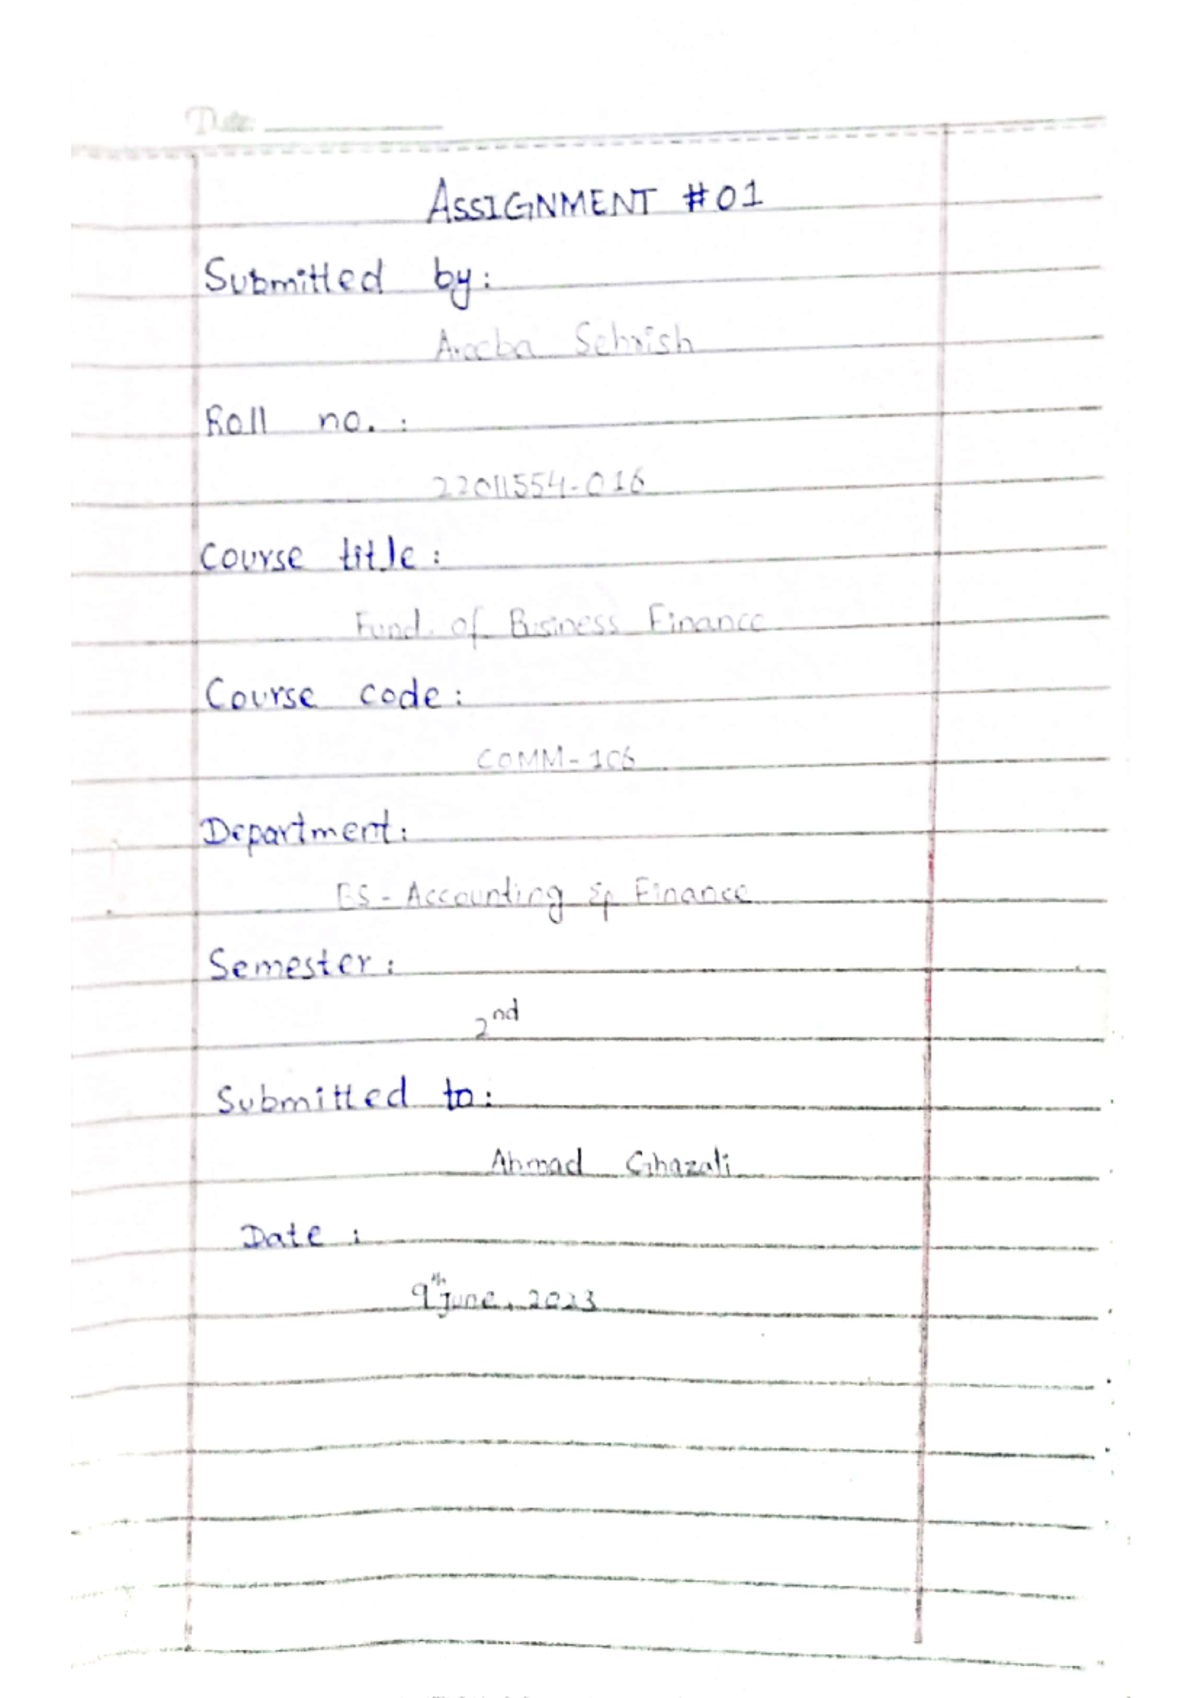 Date:
ASSIGNMENT #01
Submitted by:
Areeba Sehrish
Roll no. :
22011554-016
Course title :
Fund. of Business Finance
Course code :
COMM-106
Department:
BS - Accounting & Finance
Semester :
2nd
Submitted to :
Ahmad Ghazali
Date :
9th June, 2023